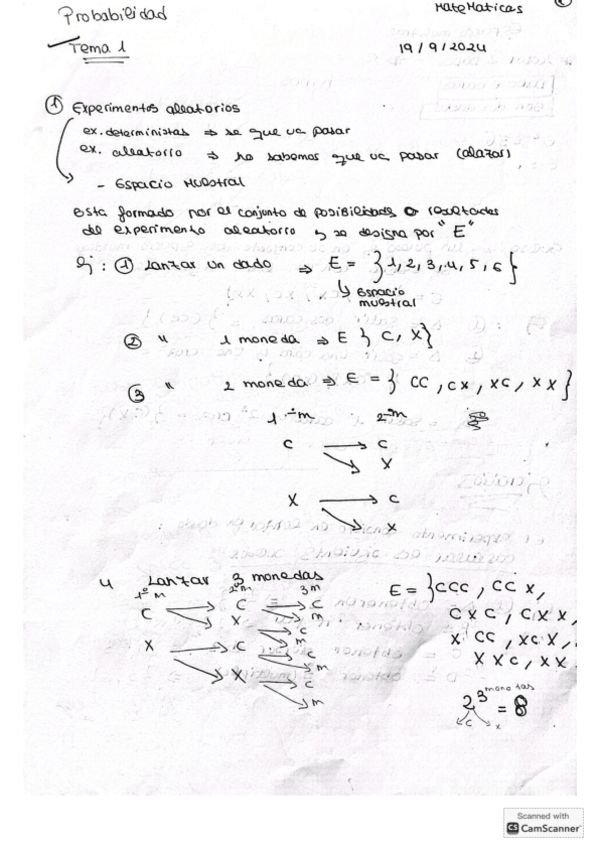 Probabilidad
Matematicas
Tema 1
19/9/2024
① Experimentos aleatorios
ex. deterministas ⇒ se que va pasar
ex. aleatorio ⇒ no sabemos que va pasar (al azar)
- Espacio Muestral
Esta formado por el conjunto de posibilidades o resultados
del experimento aleatorio y se designa por "E"
Ej: ① Lanzar un dado ⇒ E = {1, 2, 3, 4, 5, 6}
↳ Espacio
muestral
② " 1 moneda ⇒ E { C, X}
③ " 2 moneda ⇒ E = { CC, CX, XC, XX }
1ªm 2ªm
C → C
↘ X
X → C
↘ X
4 Lanzar 3 monedas
1ª m 2ªm 3m
C → C → C
m
X → C
m
X → C → C
m
X → C
m
E = {CCC, CCX,
CXC, CXX,
X CC, XCX,
XXC, XX
2³ monedas = 8
C X
Scanned with
CS CamScanner